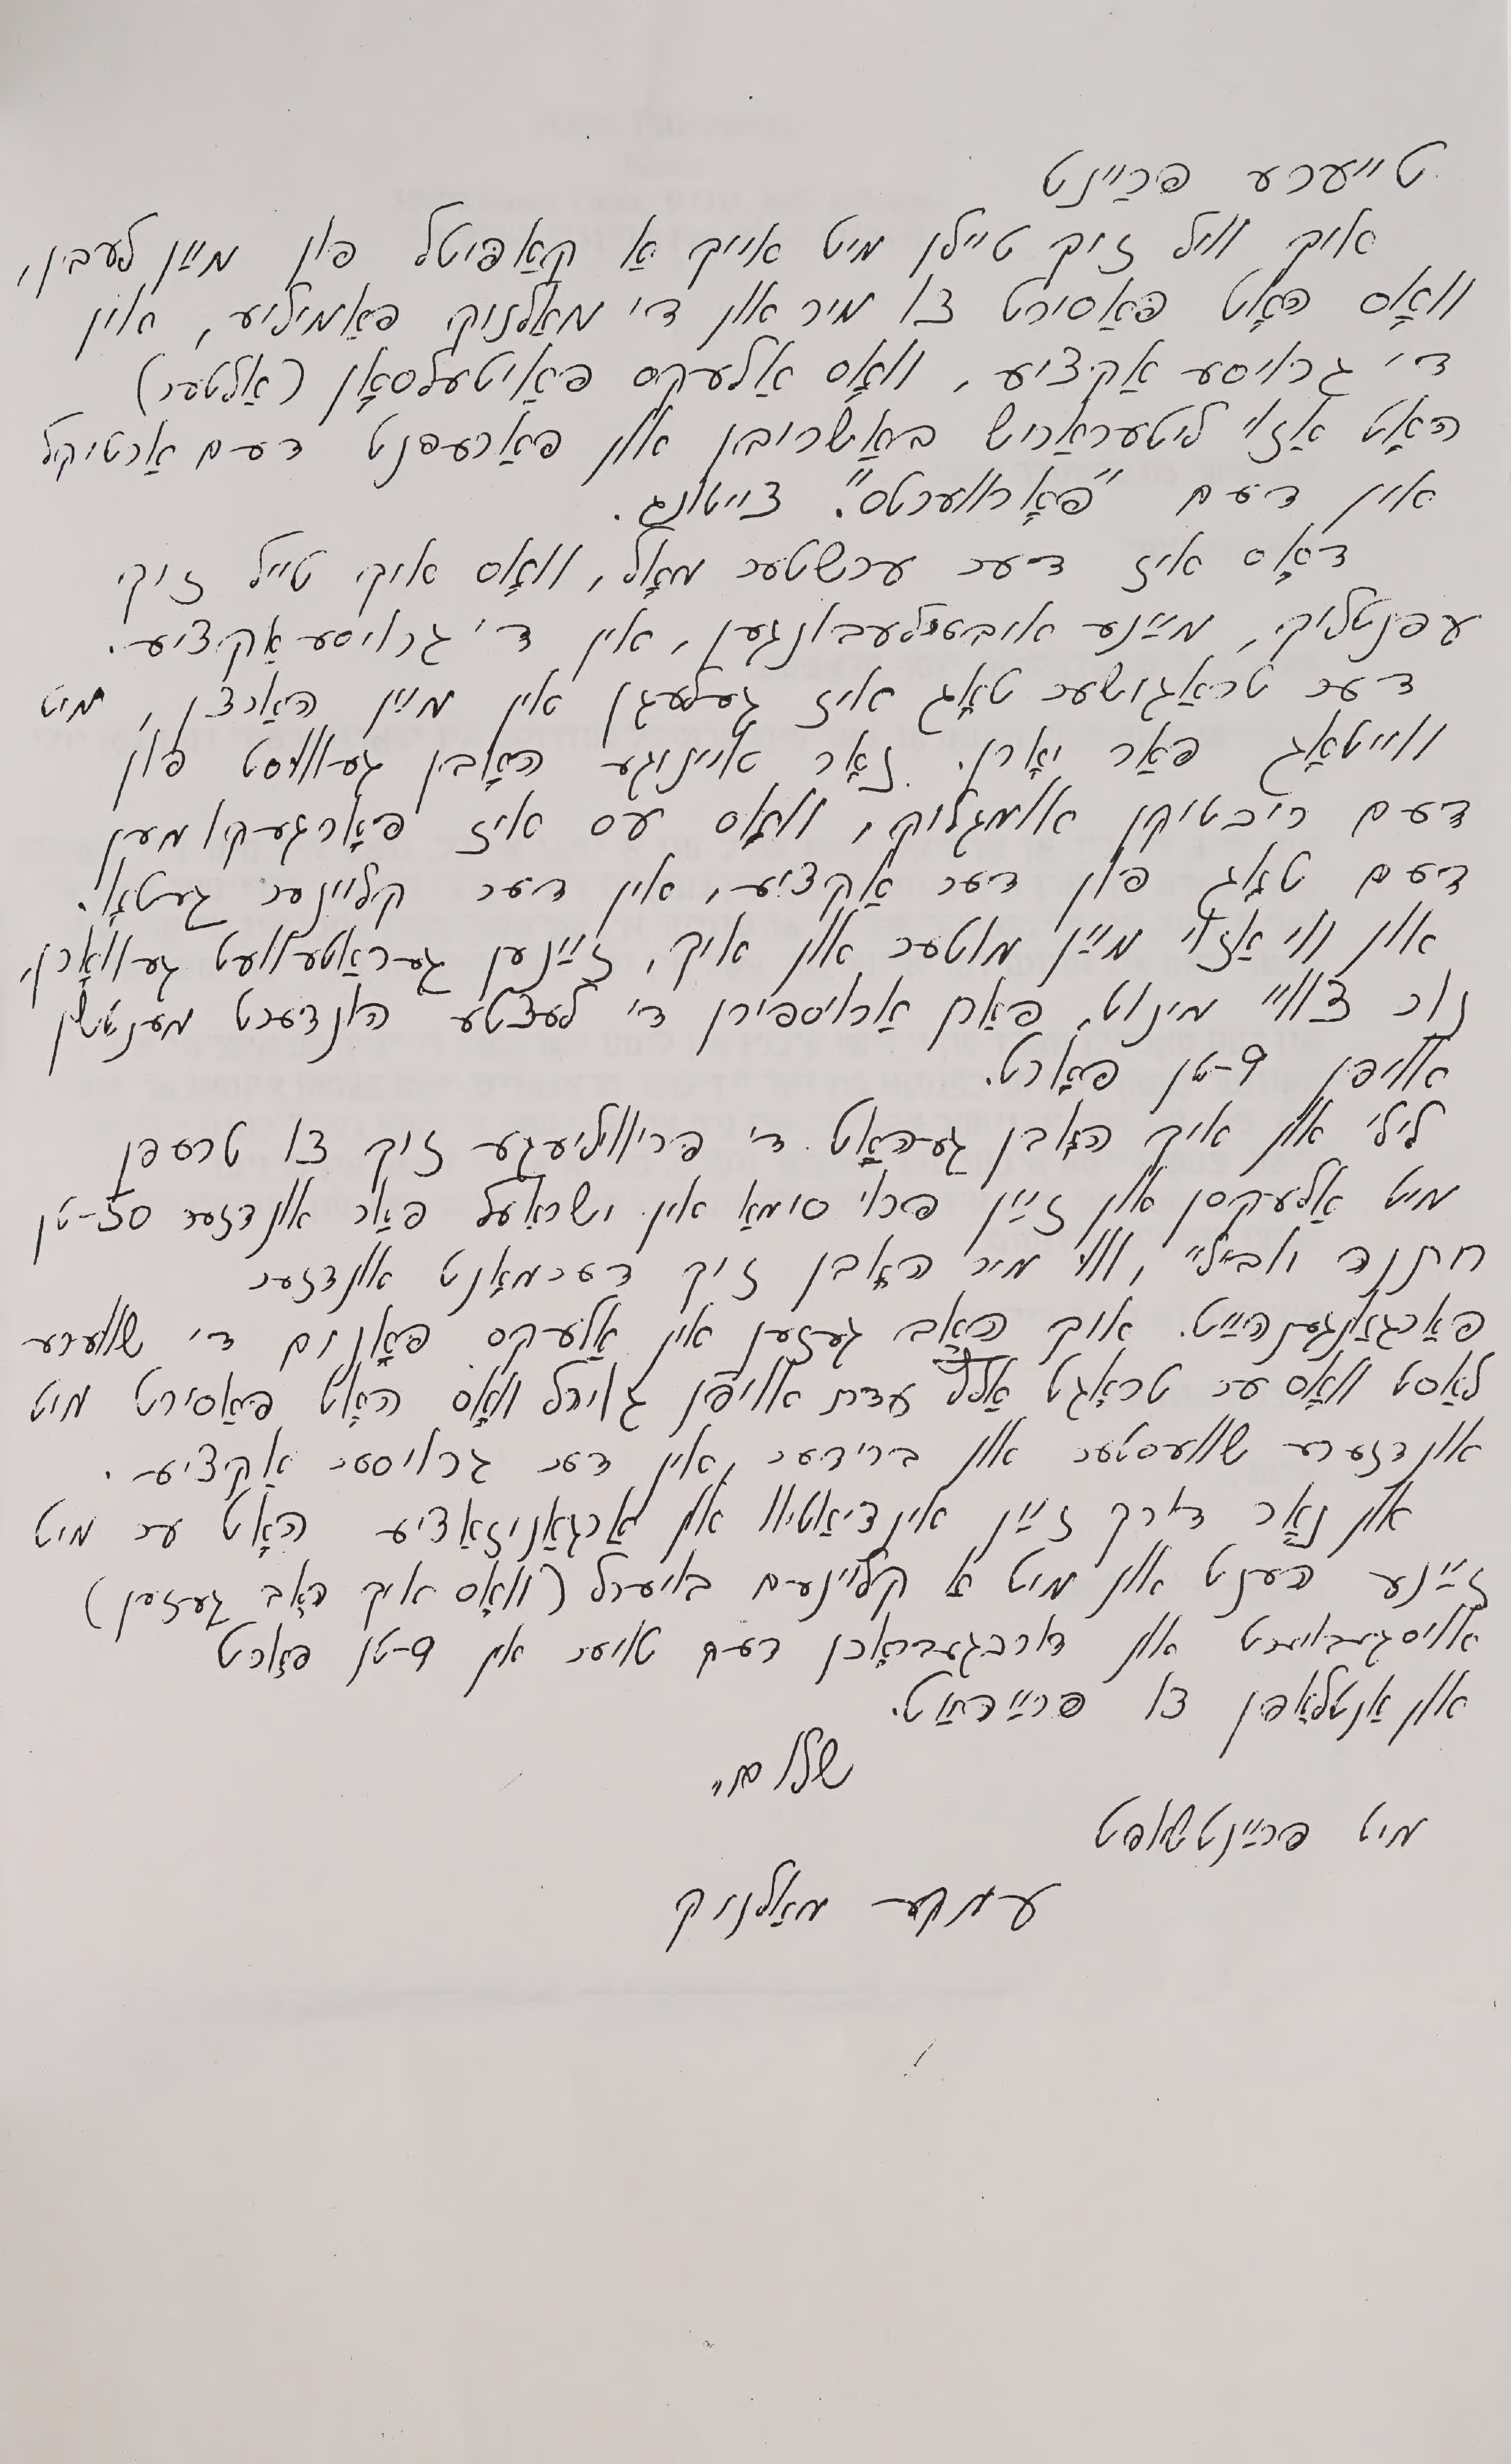 טייערע פרײַנט
איך וויל זיך טיילן מיט אייך אַ קאַפּיטל פון מײַן לעבין,
וואָס האָט פּאַסירט צו מיר און די מאַלניק פאַמיליע, אין
די גרויסע אַקציע, וואָס אַלעקס פאַיטעלסאָן (אַלטער)
האָט אַזוי ליטעראַריש באַשריבן און פאַרעפנט דעם אַרטיקל
אין דעם "פאָרווערטס". צייטונג.
דאָס איז דער ערשטער מאָל, וואָס איך טייל זיך
עפנטליך, מײַנע איבערלעבונגען, אין די גרויסע אַקציע.
דער טראַגישער טאָג איז געלעגן אין מײַן האַרצן, מיט
ווייטאָג פאַר יאָרן. נאָר אייניגע האָבן געוווּסט פון
דעם ריכטיקן אומגליק, וואָס עס איז פאָרגעקומען
דעם טאָג פון דער אַקציע, אין דער קליינער געטאָ.
און ווי אַזוי מײַן מוטער און איך, זײַנען געראַטעוועט געוואָרן,
נור צוויי מינוט, פאַרן אַרויספירן די לעצטע הונדערט מענטשן
אויפן 9-טן פאָרט.
לילי און איך האָבן געהאַט די פּריווליעגע זיך צו טרעפן
מיט אַלעקסן און זײַן פרוי סימאַ אין ישראַעל פאַר אונדזער 50-טן
חתנה יובילײ, ווי מיר האָבן זיך דערמאָנט אונדזער
פאַרגאַנגענהײַט. איך האָב געזען אין אַלעקס פּאָנים די שווערע
לאַסט וואָס ער טראָגט אַלץ עדת אויפן גוירל וואָס האָט פּאַסירט מיט
אונדזערע שוועסטער און ברידער, אין דער גרויסער אַקציע.
און נאָר דורך זײַן איניציאַטיוו און אָרגאַניזאַציע האָט ער מיט
זײַנע הענט און מיט אַ קליינעם בויערל (וואָס איך האָב געזען)
אויסגעבויערט און דורכגעבראָכן דעם טויער אין 9-טן פאָרט
און אַנטלאָפן צו פרײַהײַט.
שלום,,
מיט פרײַנטשאַפט
עמקע מאַלניק